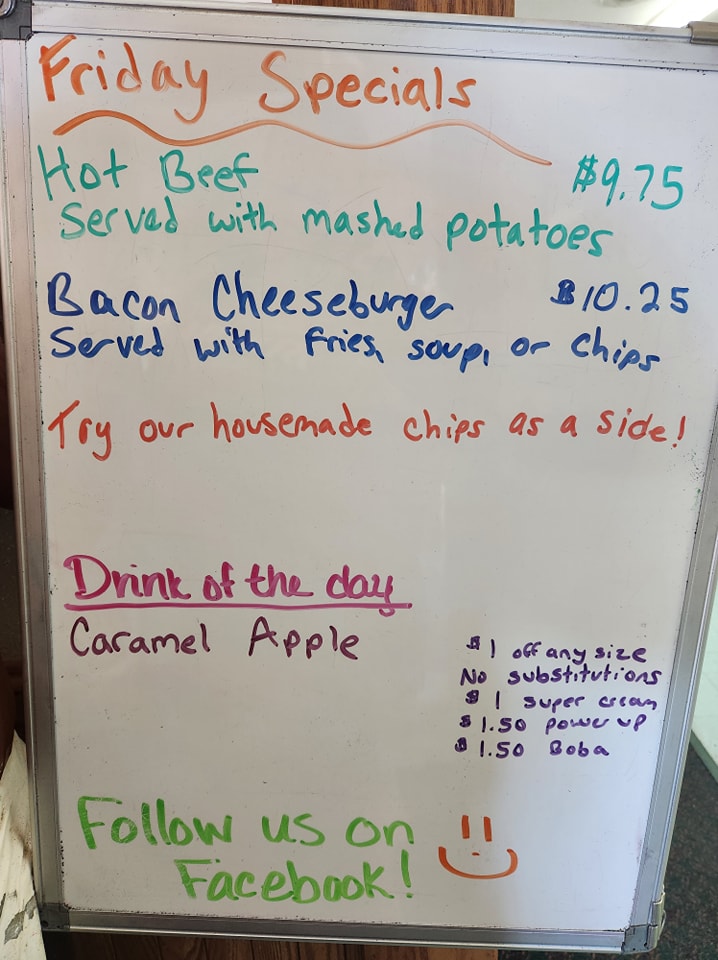 Friday Specials
Hot Beef $9.75
Served with mashed potatoes
Bacon Cheeseburger $10.25
Served with fries, soup, or chips
Try our housemade chips as a side!
Drink of the day
Caramel Apple
$1 off any size
No substitutions
$1 super cream
$1.50 power up
$1.50 Boba
Follow us on
Facebook!